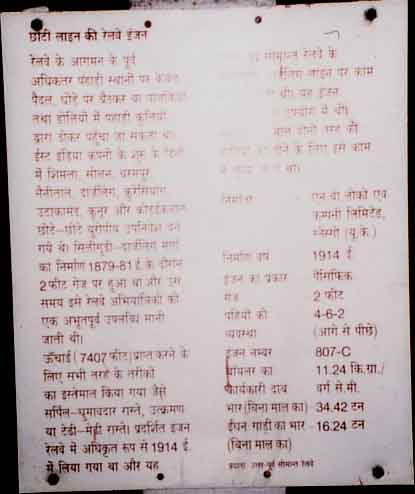 छोटी लाइन की रेलवे इंजन
रेलवे के आगमन के पूर्व
अधिकतर पहाड़ी स्थानों पर केवल
पैदल, घोड़े पर बैठकर या पालकियों
तथा डोलियों में पहाड़ी कुलियों
द्वारा ढोकर पहुंचा जा सकता था।
ईस्ट इंडिया कंपनी के शुरू के दिनों
में शिमला, सोलन, धरमपुर
नैनीताल, दार्जीलिंग, कुरसियांग
उटाकामंड, कुनूर और कोडईकनाल
छोटे-छोटे युरोपीय उपनिवेश बन
गये थे। सिलीगुड़ी-दार्जीलिंग मार्ग
का निर्माण 1879-81 ई. के दौरान
2 फीट गेज पर हुआ था और उस
समय इसे रेलवे अभियांत्रिकी की
एक अभूतपूर्व उपलब्धि मानी
जाती थी।
ऊँचाई (7407 फीट) प्राप्त करने के
लिए सभी तरह के तरीकों
का इस्तेमाल किया गया जैसे
सर्पिल-घुमावदार रास्ते, उत्क्रमण
या टेढ़ी-मेढ़ी रास्ते। प्रदर्शित इंजन
रेलवे में अधिकृत रूप से 1914 ई.
में लिया गया था और यह
सीमान्त रेलवे के
लाइन पर काम
थी। यह इंजन
उपयोग में थी।
माल दोनों तरह की
के लिए इसे काम
था।
निर्माता - एन बी लोको एंव
कम्पनी लिमिटेड,
ग्लैसगो (यू.के.)
निर्माण वर्ष 1914 ई
इंजन का प्रकार पैसिफिक
गेज 2 फीट
पहियों की 4-6-2
व्यवस्था (आगे से पीछे)
इंजन नम्बर 807-C
बॉयलर का 11.24 कि.ग्रा./
कार्यकारी दाब वर्ग से.मी.
भार (बिना माल का) 34.42 टन
ईंधन गाड़ी का भार - 16.24 टन
(बिना माल का)
उत्तर-पूर्व सीमान्त रेलवे